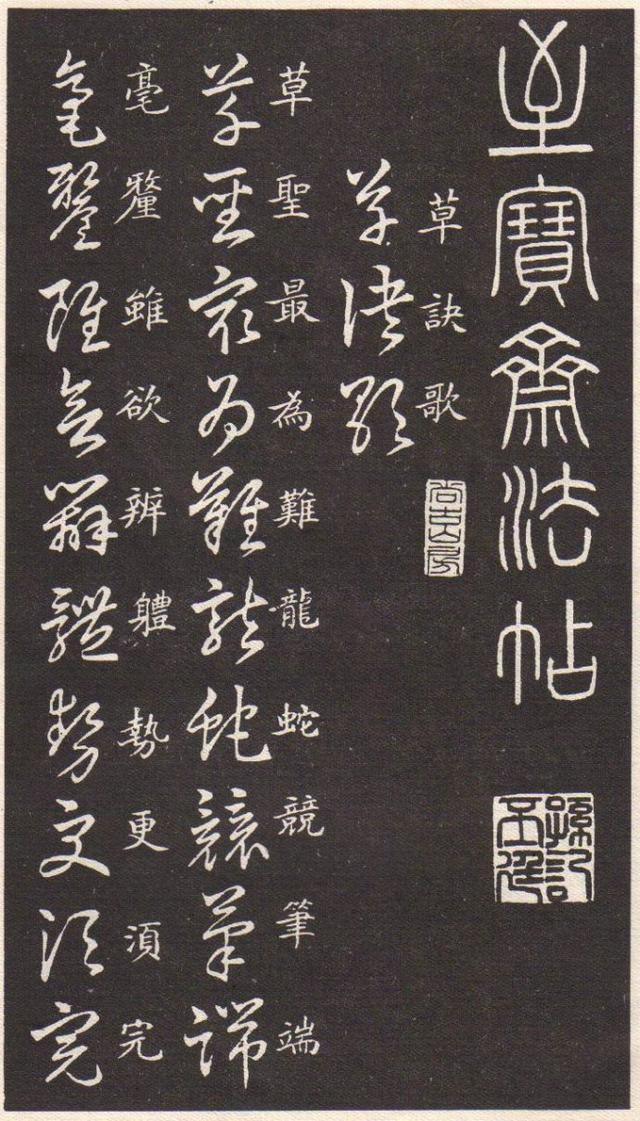 至寶齋法帖
草訣歌
尚古山房
草訣歌
草聖最為難龍蛇競筆端
草聖最為難龍蛇競筆端
毫釐雖欲辨軆勢更湏完
毫釐雖欲辨軆勢更湏完